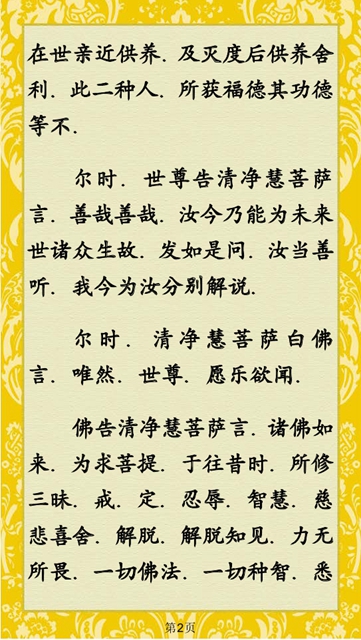 在世亲近供养．及灭度后供养舍
利．此二种人．所获福德其功德
等不．
尔时．世尊告清净慧菩萨
言．善哉善哉．汝今乃能为未来
世诸众生故．发如是问．汝当善
听．我今为汝分别解说．
尔时．清净慧菩萨白佛
言．唯然．世尊．愿乐欲闻．
佛告清净慧菩萨言．诸佛如
来．为求菩提．于往昔时．所修
三昧．戒．定．忍辱．智慧．慈
悲喜舍．解脱．解脱知见．力无
所畏．一切佛法．一切种智．悉
第2页